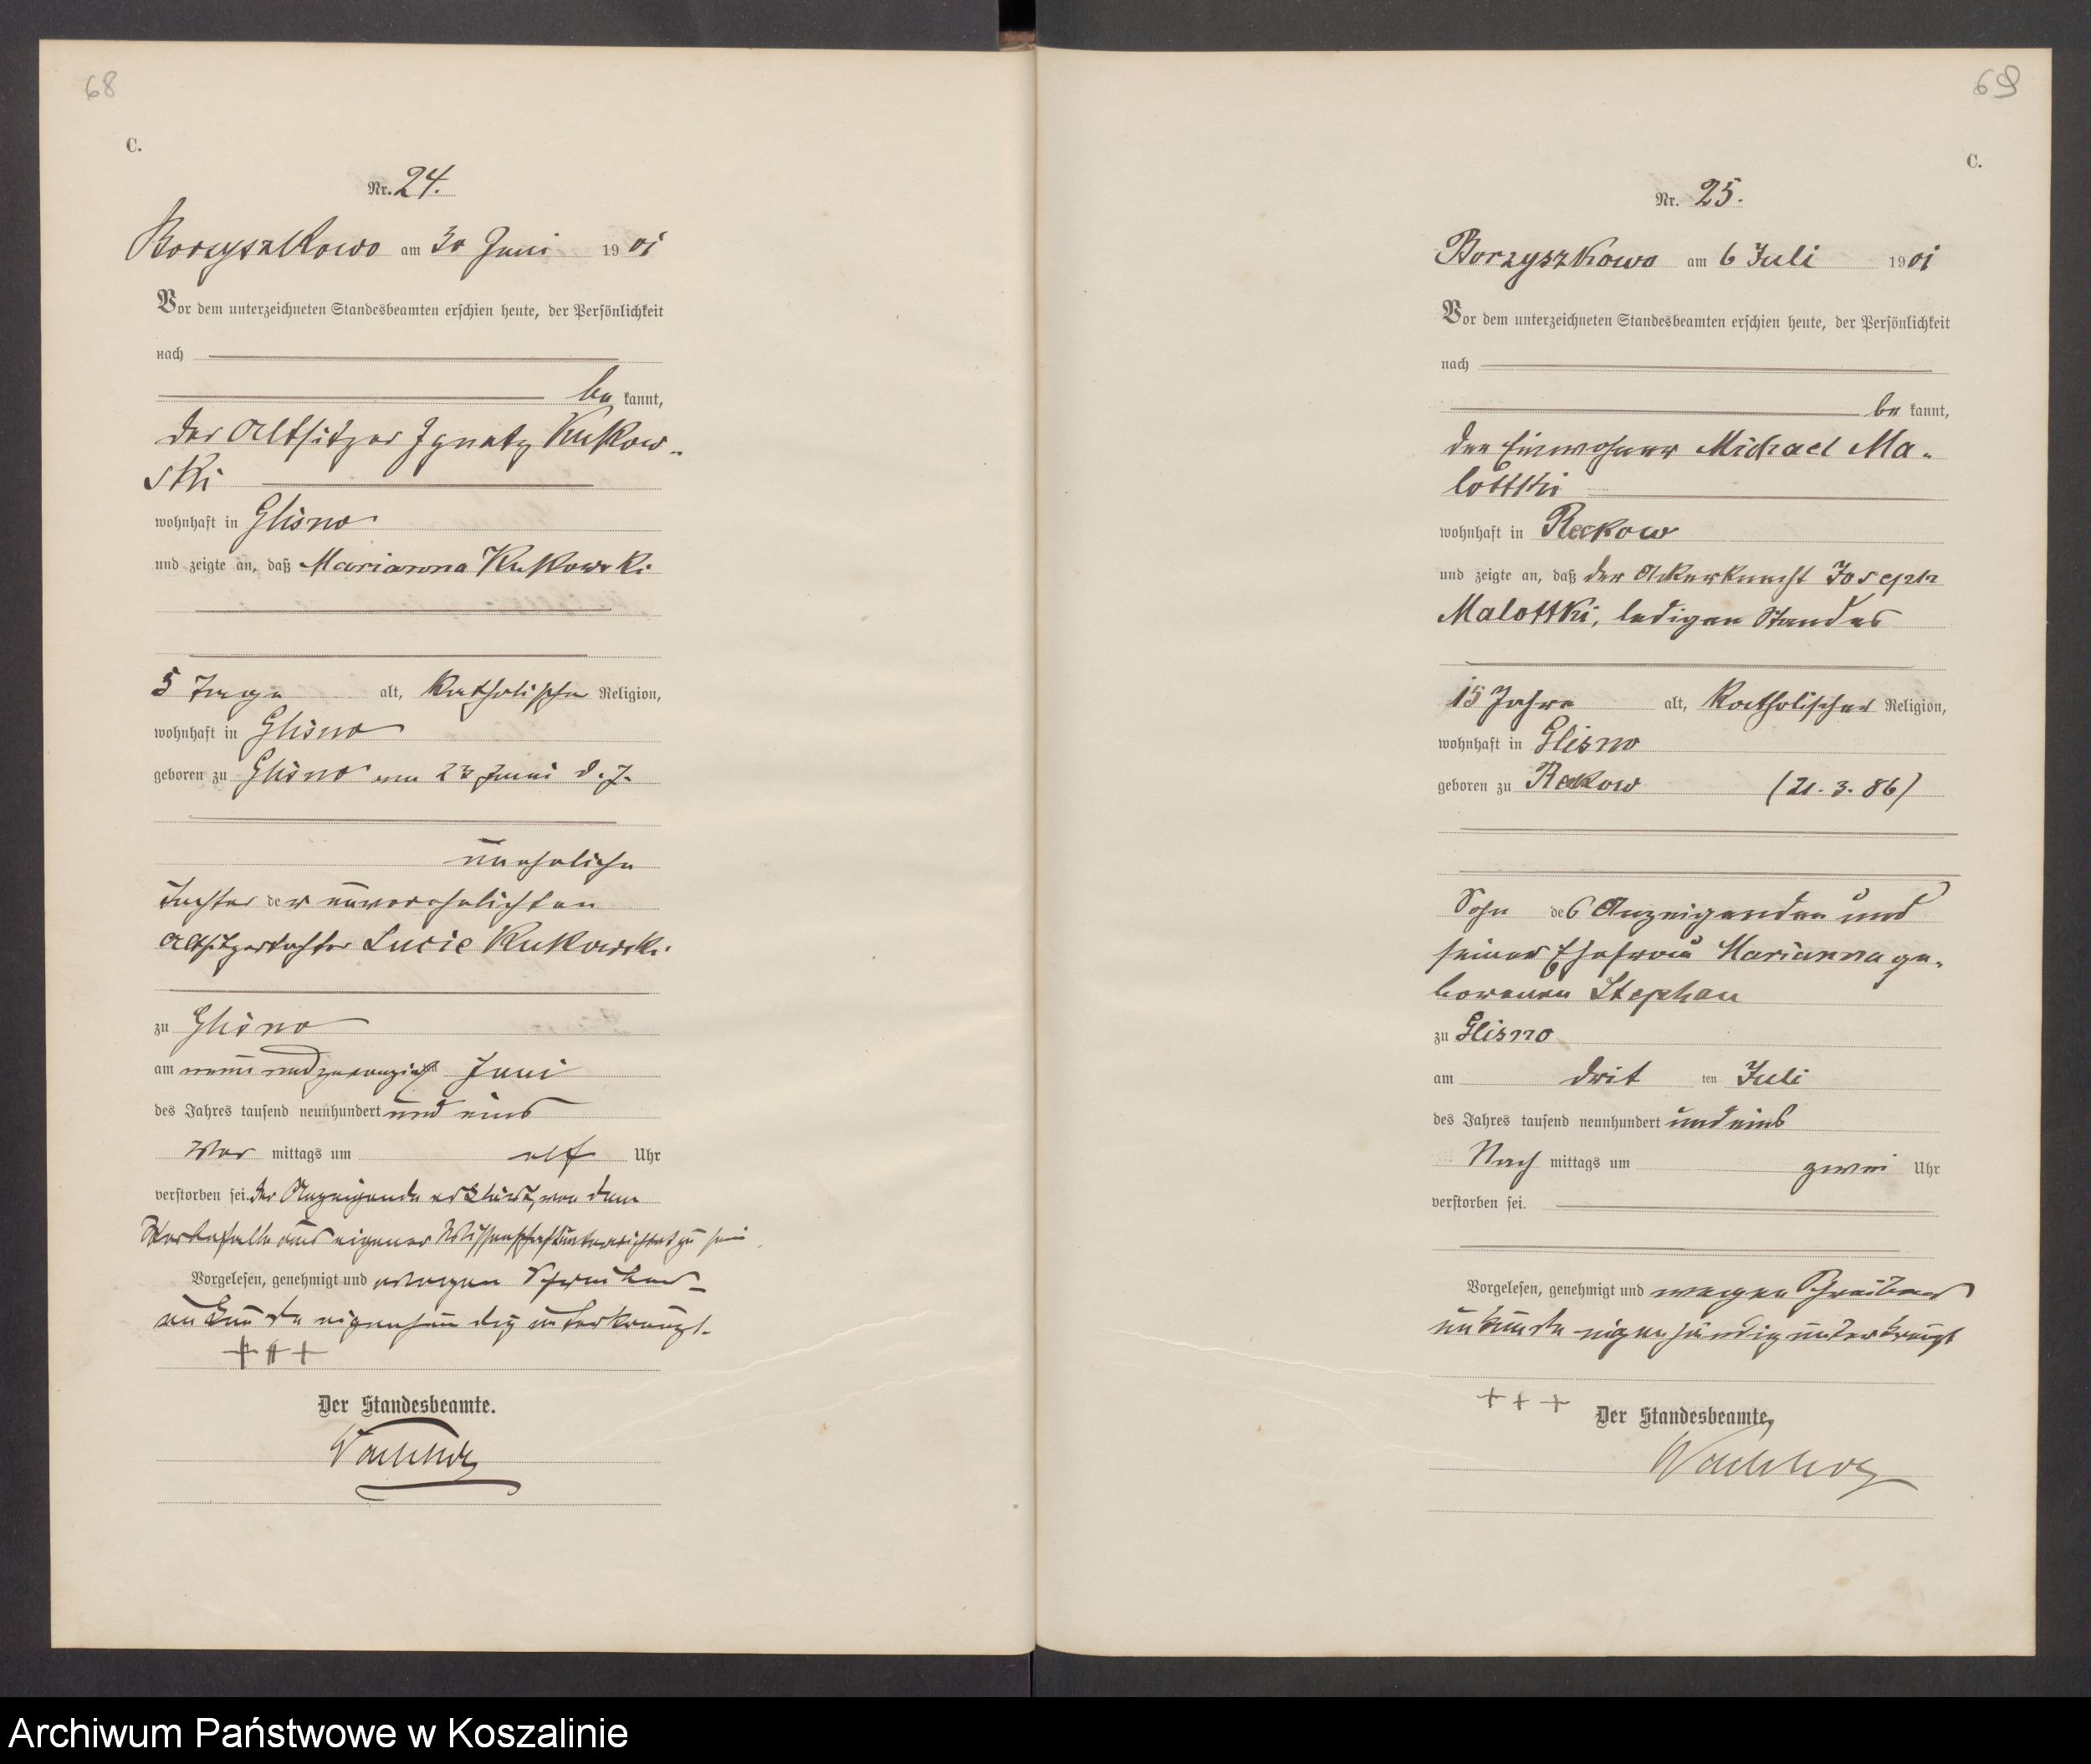 68
C.
Nr. 24.
Borzyszkowo am 30 Juni 1901
Vor dem unterzeichneten Standesbeamten erschien heute, der Persönlichkeit
nach
be kannt,
der Altsitzer Ignatz Kukow-
ski
wohnhaft in Glisno
und zeigte an, daß Marianna Kukowski
5 Tage alt, katholischer Religion,
wohnhaft in Glisno
geboren zu Glisno am 23 Juni d. J.
uneheliche
Tochter der unverehelichten
Altsitzertochter Lucie Kukowski
zu Glisno
am neunundzwanzigsten Juni
des Jahres tausend neunhundert und eins
Vor mittags um elf Uhr
verstorben sei. Der Anzeigende erklärt, von dem
Sterbefalle aus eigener Wissenschaft unterrichtet zu sein
Vorgelesen, genehmigt und wegen Schreibens-
unkunde eigenhändig unterkreuzt.
+++
Der Standesbeamte.
Wachholz
69
C.
Nr. 25.
Borzyszkowo am 6 Juli 1901
Vor dem unterzeichneten Standesbeamten erschien heute, der Persönlichkeit
nach
be kannt,
der Einwohner Michael Ma-
lottki
wohnhaft in Reckow
und zeigte an, daß der Ackerknecht Joseph
Malottki, ledigen Standes
15 Jahre alt, katholischer Religion,
wohnhaft in Glisno
geboren zu Reckow (21. 3. 86)
Sohn des Anzeigenden und
seiner Ehefrau Marianna ge-
borenen Stephan
zu Glisno
am drit ten Juli
des Jahres tausend neunhundert und eins
Nach mittags um zwei Uhr
verstorben sei.
Vorgelesen, genehmigt und wegen Schreibens
unkunde eigenhändig unterkreuzt
+++
Der Standesbeamte,
Wachholz
Archiwum Państwowe w Koszalinie